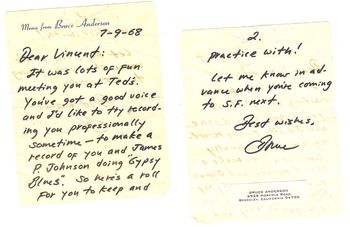 Memo from Bruce Anderson
7-9-68
Dear Vincent:
It was lots of fun
meeting you at Teds.
You've got a good voice
and I'd like to try record-
ing you professionally
sometime - to make a
record of you and James
P. Johnson doing "Gypsy
Blues". So here's a roll
for you to keep and
2.
practice with!
Let me know in ad-
vance when you're coming
to S.F. next.
Best wishes,
Bruce
BRUCE ANDERSON
NORFOLK ROAD
BERKELEY, CALIFORNIA 94705